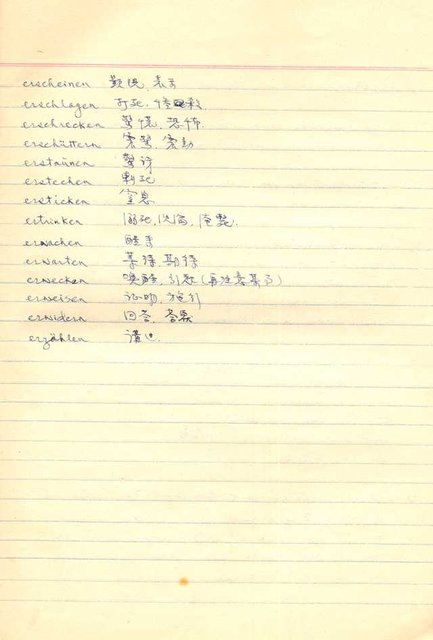 erscheinen 显现、表示
erschlagen 打死、
erschrecken 惊慌、恐怖
erschüttern 震惊、震动
erstaunen 惊讶
erstechen 刺死
ersticken 窒息
ertrinken 溺死、沉 淹毙
erwachen 醒来
erwarten 等待、期待
erwecken 唤醒、引起
erweisen 证明、
erwidern 回答、答
erzählen 讲述